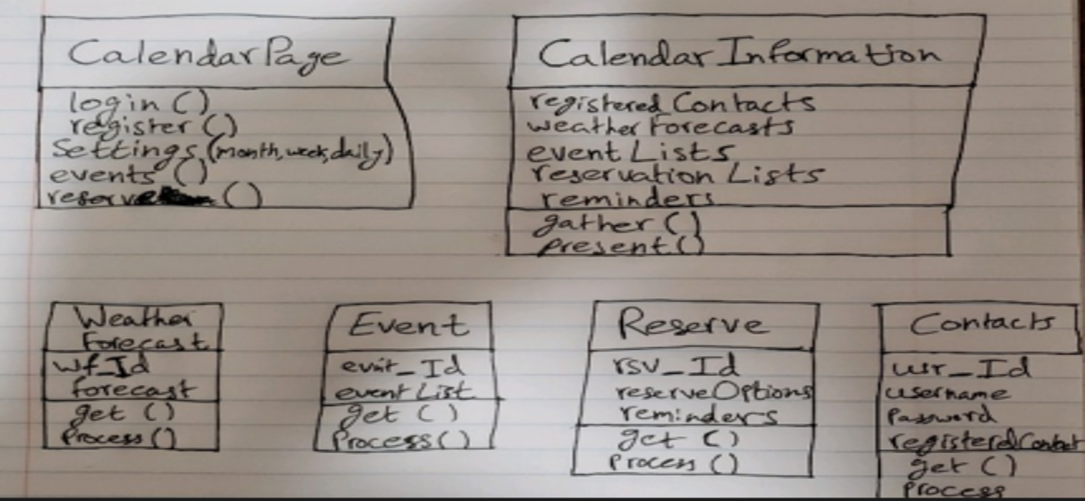 CalendarPage
login ()
register ()
Settings (month, week, daily)
events ()
reserve ()
Calendar Information
registered Contacts
weather Forecasts
event Lists
reservation Lists
reminders
gather ()
present ()
Weather
Forecast
wf_Id
forecast
get ()
Process ()
Event
evnt_Id
event List
get ()
Process ()
Reserve
rsv_Id
reserveOptions
reminders
get ()
Process ()
Contacts
usr_Id
username
Password
registeredContact
get ()
Process